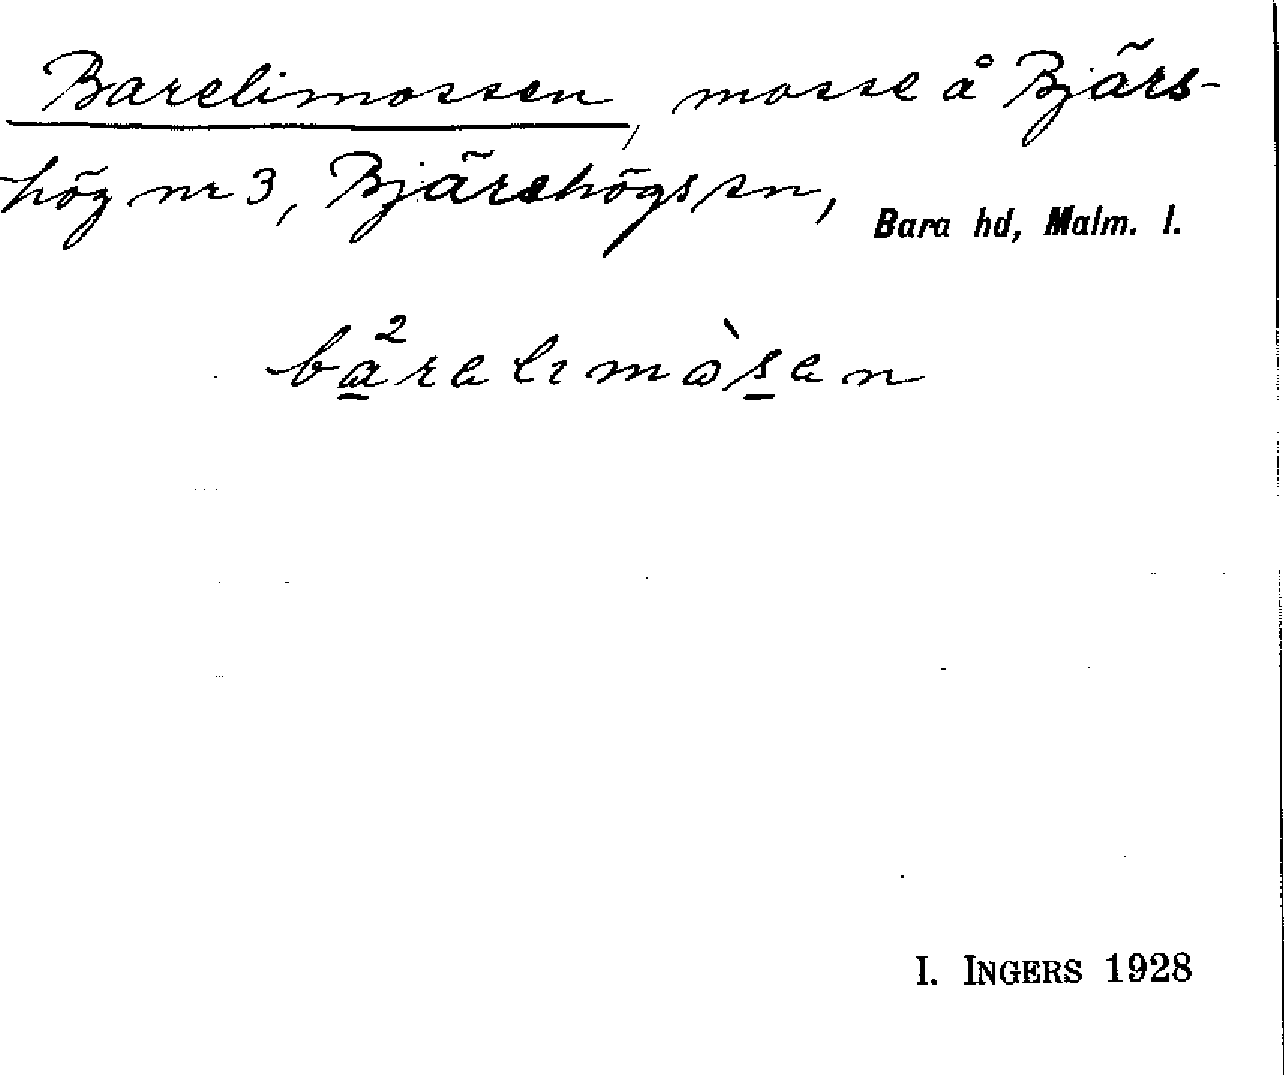 Barelimossen, mosse å Bjärs-
hög nr 3, Bjärshögs sn, Bara hd, Malm. l.
I. INGERS 1928